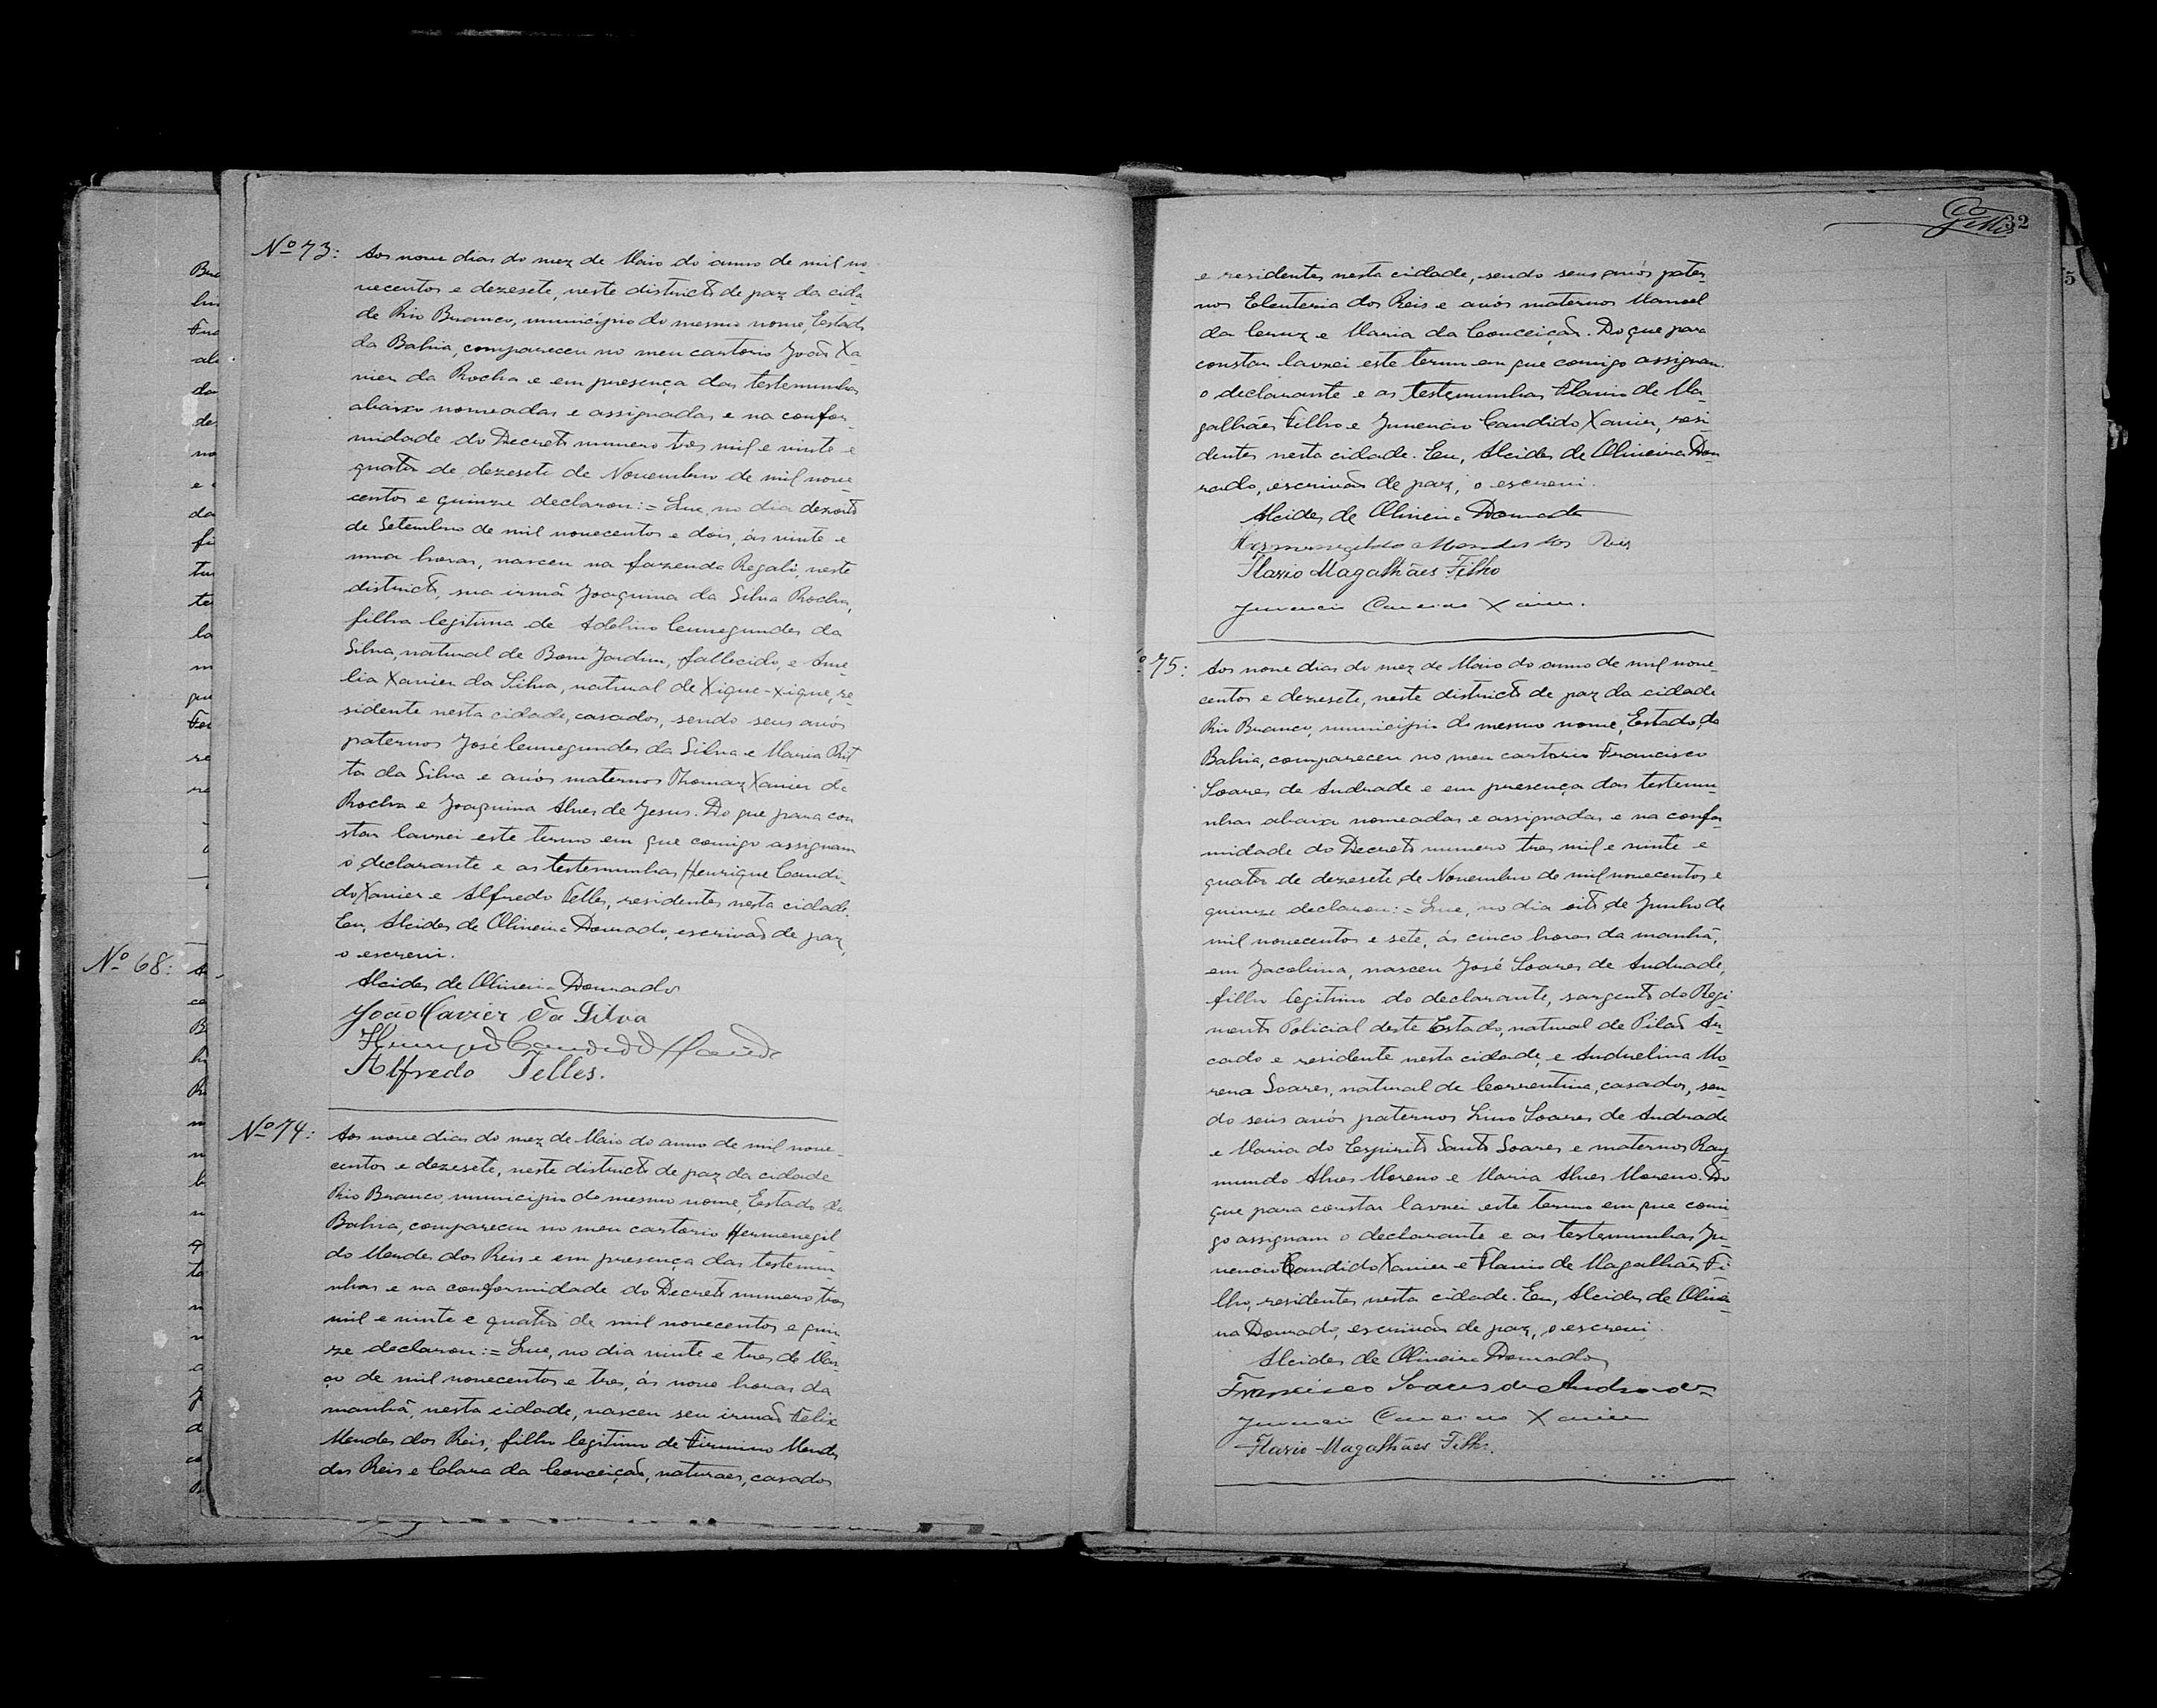 Nº 73:
Aos nove dias do mez de Maio do anno de mil no-
vecentos e dezesete, neste districto de paz da cida
de Rio Branco, municipio do mesmo nome, Estado
da Bahia, compareceu no meu cartorio João Xa
vier da Rocha e em presença das testemunhas
abaixo nomeadas e assignadas e na confor-
midade do Decreto numero tres mil e vinte e
quatro de dezesete de Novembro de mil nove-
centos e quinze declarou:= Que, no dia dezoito
de Setembro de mil novecentos e dois, ás vinte e
uma horas, nasceu na fazenda Regalo, neste
districto, sua irmã Joaquina da Silva Rocha,
filha legitima de Adelino Cunegundes da
Silva, natural de Bom Jardim, fallecido, e Ame
lia Xavier da Silva, natural de Xique-xique, re-
sidente nesta cidade, casados, sendo seus avós
paternos José Cunegundes da Silva e Maria Rit
ta da Silva e avós maternos Thomaz Xavier da
Rocha e Joaquina Alves de Jesus. Do que para con
star lavrei este termo em que comigo assignam
o declarante e as testemunhas Henrique Candi-
do Xavier e Alfredo Telles, residentes nesta cidade.
Eu, Alcides de Oliveira Dourado, escrivão de paz,
o escrevi.
Alcides de Oliveira Dourado
João Xavier da Silva
Alfredo Telles.
Nº 74:
Aos nove dias do mez de Maio do anno de mil nove-
centos e dezesete, neste districto de paz da cidade
Rio Branco, municipio do mesmo nome, Estado da
Bahia, compareceu no meu cartorio Hermenegil
do Mendes dos Reis e em presença das testemu
nhas e na conformidade do Decreto numero tres
mil e vinte e quatro de mil novecentos e quin
ze declarou:= Que, no dia vinte e tres de Mar
ço de mil novecentos e tres, ás nove horas da
manhã, nesta cidade, nasceu seu irmão Felix
Mendes dos Reis, filho legitimo de Firmino Mendes
dos Reis e Clara da Conceição, naturaes, casados
32
e residentes nesta cidade, sendo seus avós pater
nos Eleuteria dos Reis e avós maternos Manoel
da Cruz e Maria da Conceição. Do que para
constar lavrei este termo em que comigo assignam
o declarante e as testemunhas Flavio de Ma-
galhães Filho e Juvencio Candido Xavier, resi-
dentes nesta cidade. Eu, Alcides de Oliveira Dou
rado, escrivão de paz, o escrevi.
Alcides de Oliveira Dourado
Hermenegildo Mendes dos Reis
Flavio Magalhães Filho
Juvencio Candido Xavier.
º 75:
Aos nove dias do mez de Maio do anno de mil nove-
centos e dezesete, neste districto de paz da cidade
Rio Branco, municipio do mesmo nome, Estado da
Bahia, compareceu no meu cartorio Francisco
Soares de Andrade e em presença das testemu-
nhas abaixo nomeadas e assignadas e na confor
midade do Decreto numero tres mil e vinte e
quatro de dezesete de Novembro de mil novecentos e
quinze declarou:= Que, no dia oito de Junho de
mil novecentos e sete, ás cinco horas da manhã,
em Jacobina, nasceu José Soares de Andrade,
filho legitimo do declarante, sargento do Regi
mento Policial deste Estado, natural de Pilão Ar
cado e residente nesta cidade, e Andrelina Mo
rena Soares, natural de Correntina, casados, sen
do seus avós paternos Lino Soares de Andrade
e Maria do Espirito Santo Soares e maternos Ray
mundo Alves Moreno e Maria Alves Moreno. Do
que para constar lavrei este termo em que comi
go assignam o declarante e as testemunhas Ju-
vencio Candido Xavier e Flavio de Magalhães Fi
lho, residentes nesta cidade. Eu, Alcides de Olivei
ra Dourado, escrivão de paz, o escrevi.
Alcides de Oliveira Dourado
Francisco Soares de Andrade
Juvencio Candido Xavier
Flavio Magalhães Filho.
Nº 68: